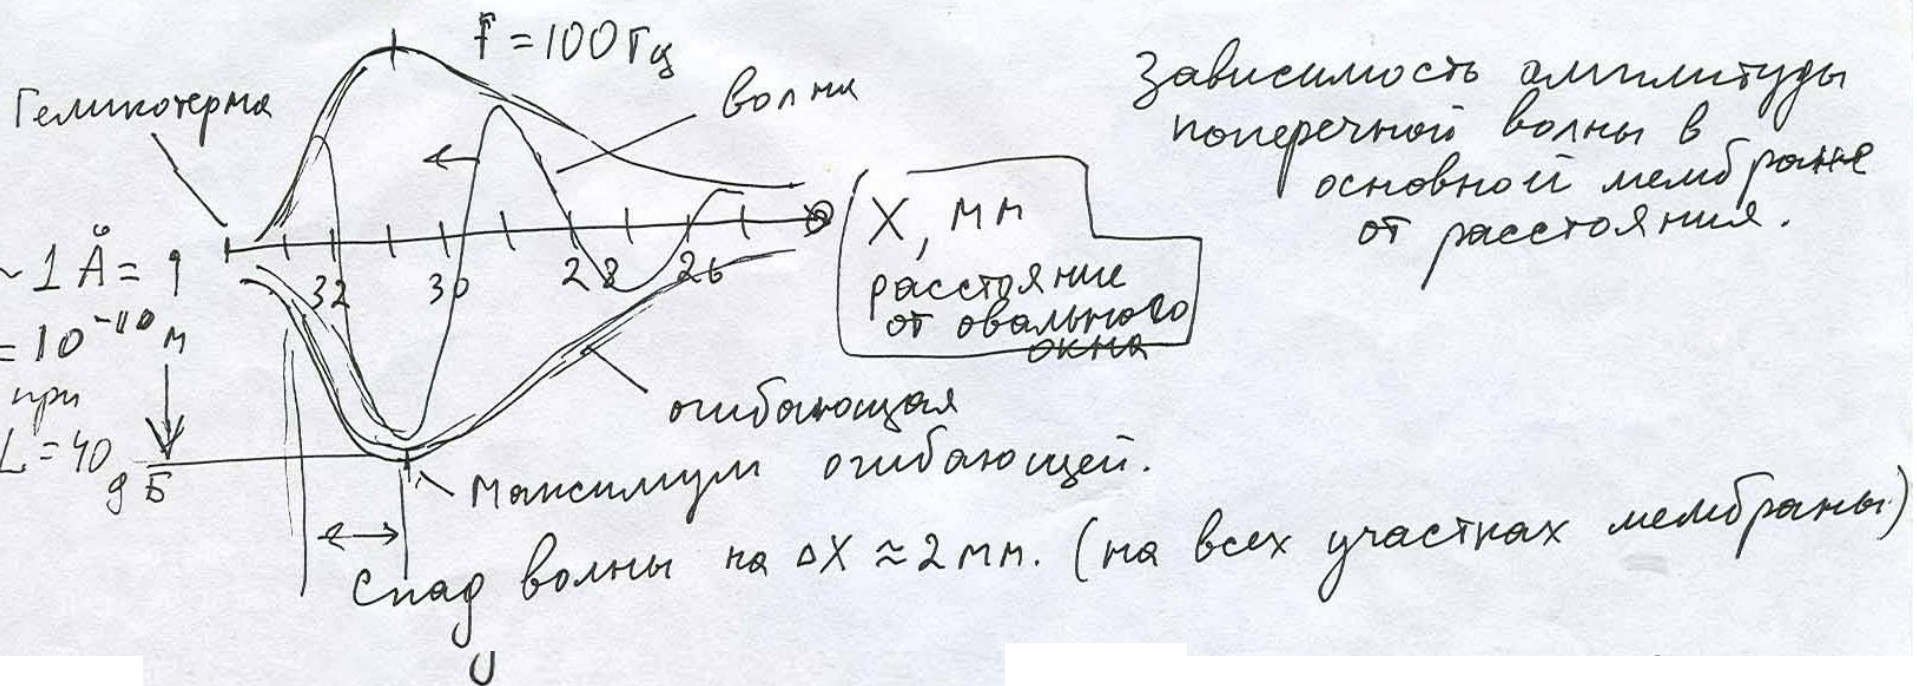 f = 100 Гц
Геликотерма
волна
Зависимость амплитуды
поперечной волны в
основной мембране
от расстояния.
X, мм
расстояние
от овального
окна
32 30 28 26
~ 1 Å =
= 10⁻¹⁰ м
при
L = 40
дБ
огибающая
Максимум огибающей.
Спад волны на ΔX ≈ 2 мм. (на всех участках мембраны)